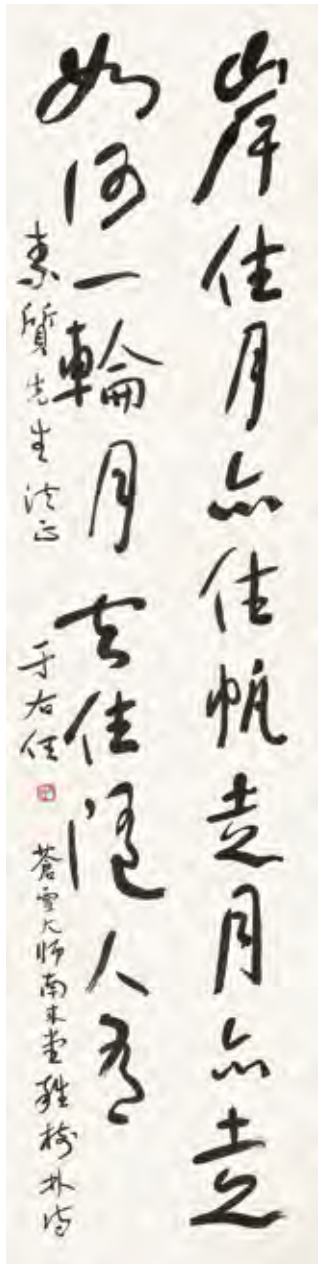 岸住月亦住帆走月亦走
如何一輪月去住隨人有
素質先生法正
于右任
蒼雪大師南來堂雜樹林詩